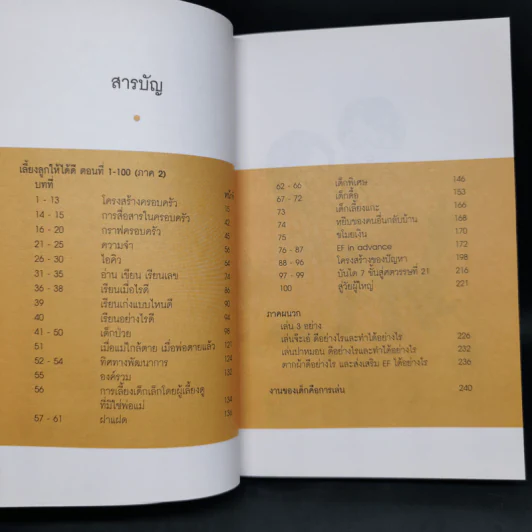 สารบัญ
เลี้ยงลูกให้ได้ดี ตอนที่ 1-100 (ภาค 2)
บทที่
1 - 13 โครงสร้างครอบครัว
14 - 15 การสื่อสารในครอบครัว
16 - 20 กราฟครอบครัว
21 - 25 ความจำ
26 - 30 ไอคิว
31 - 35 อ่าน เขียน เรียนเลข
36 - 38 เรียนเมื่อไรดี
39 เรียนเก่งแบบไหนดี
40 เรียนอย่างไรดี
41 - 50 เด็กป่วย
51 เมื่อแม่ใกล้ตาย เมื่อพ่อตายแล้ว
52 - 54 ทิศทางพัฒนาการ
55 องค์รวม 132
56 การเลี้ยงเด็กเล็กโดยผู้เลี้ยงดู
ที่มิใช่พ่อแม่ 134
57 - 61 ฝาแฝด 136
62 - 66 เด็กพิเศษ 146
67 - 72 เด็กดื้อ 153
73 เด็กเลี้ยงแกะ 166
74 หยิบของคนอื่นกลับบ้าน 168
75 ขโมยเงิน 170
76 - 87 EF in advance 172
88 - 96 โครงสร้างของปัญหา 198
97 - 99 บันได 7 ขั้นสู่ศตวรรษที่ 21 216
100 สู่วัยผู้ใหญ่ 221
ภาคผนวก
เล่น 3 อย่าง
เล่นจ๊ะเอ๋ ดีอย่างไรและทำได้อย่างไร 226
เล่นปาหมอน ดีอย่างไรและทำได้อย่างไร 232
ตากผ้าดีอย่างไร และส่งเสริม EF ได้อย่างไร 236
งานของเด็กคือการเล่น 240